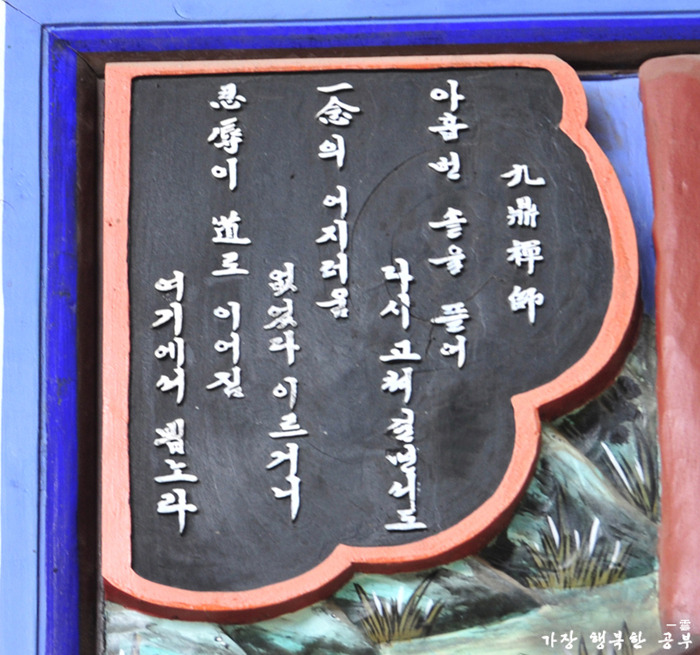 九鼎禪師
아홉 번 솥을 풀어
다시 고쳐 걸면서도
一念의 어지러움
없었다 이르거니
忍辱이 道로 이어짐
여기에서 뵙노라
가장 행복한 공부